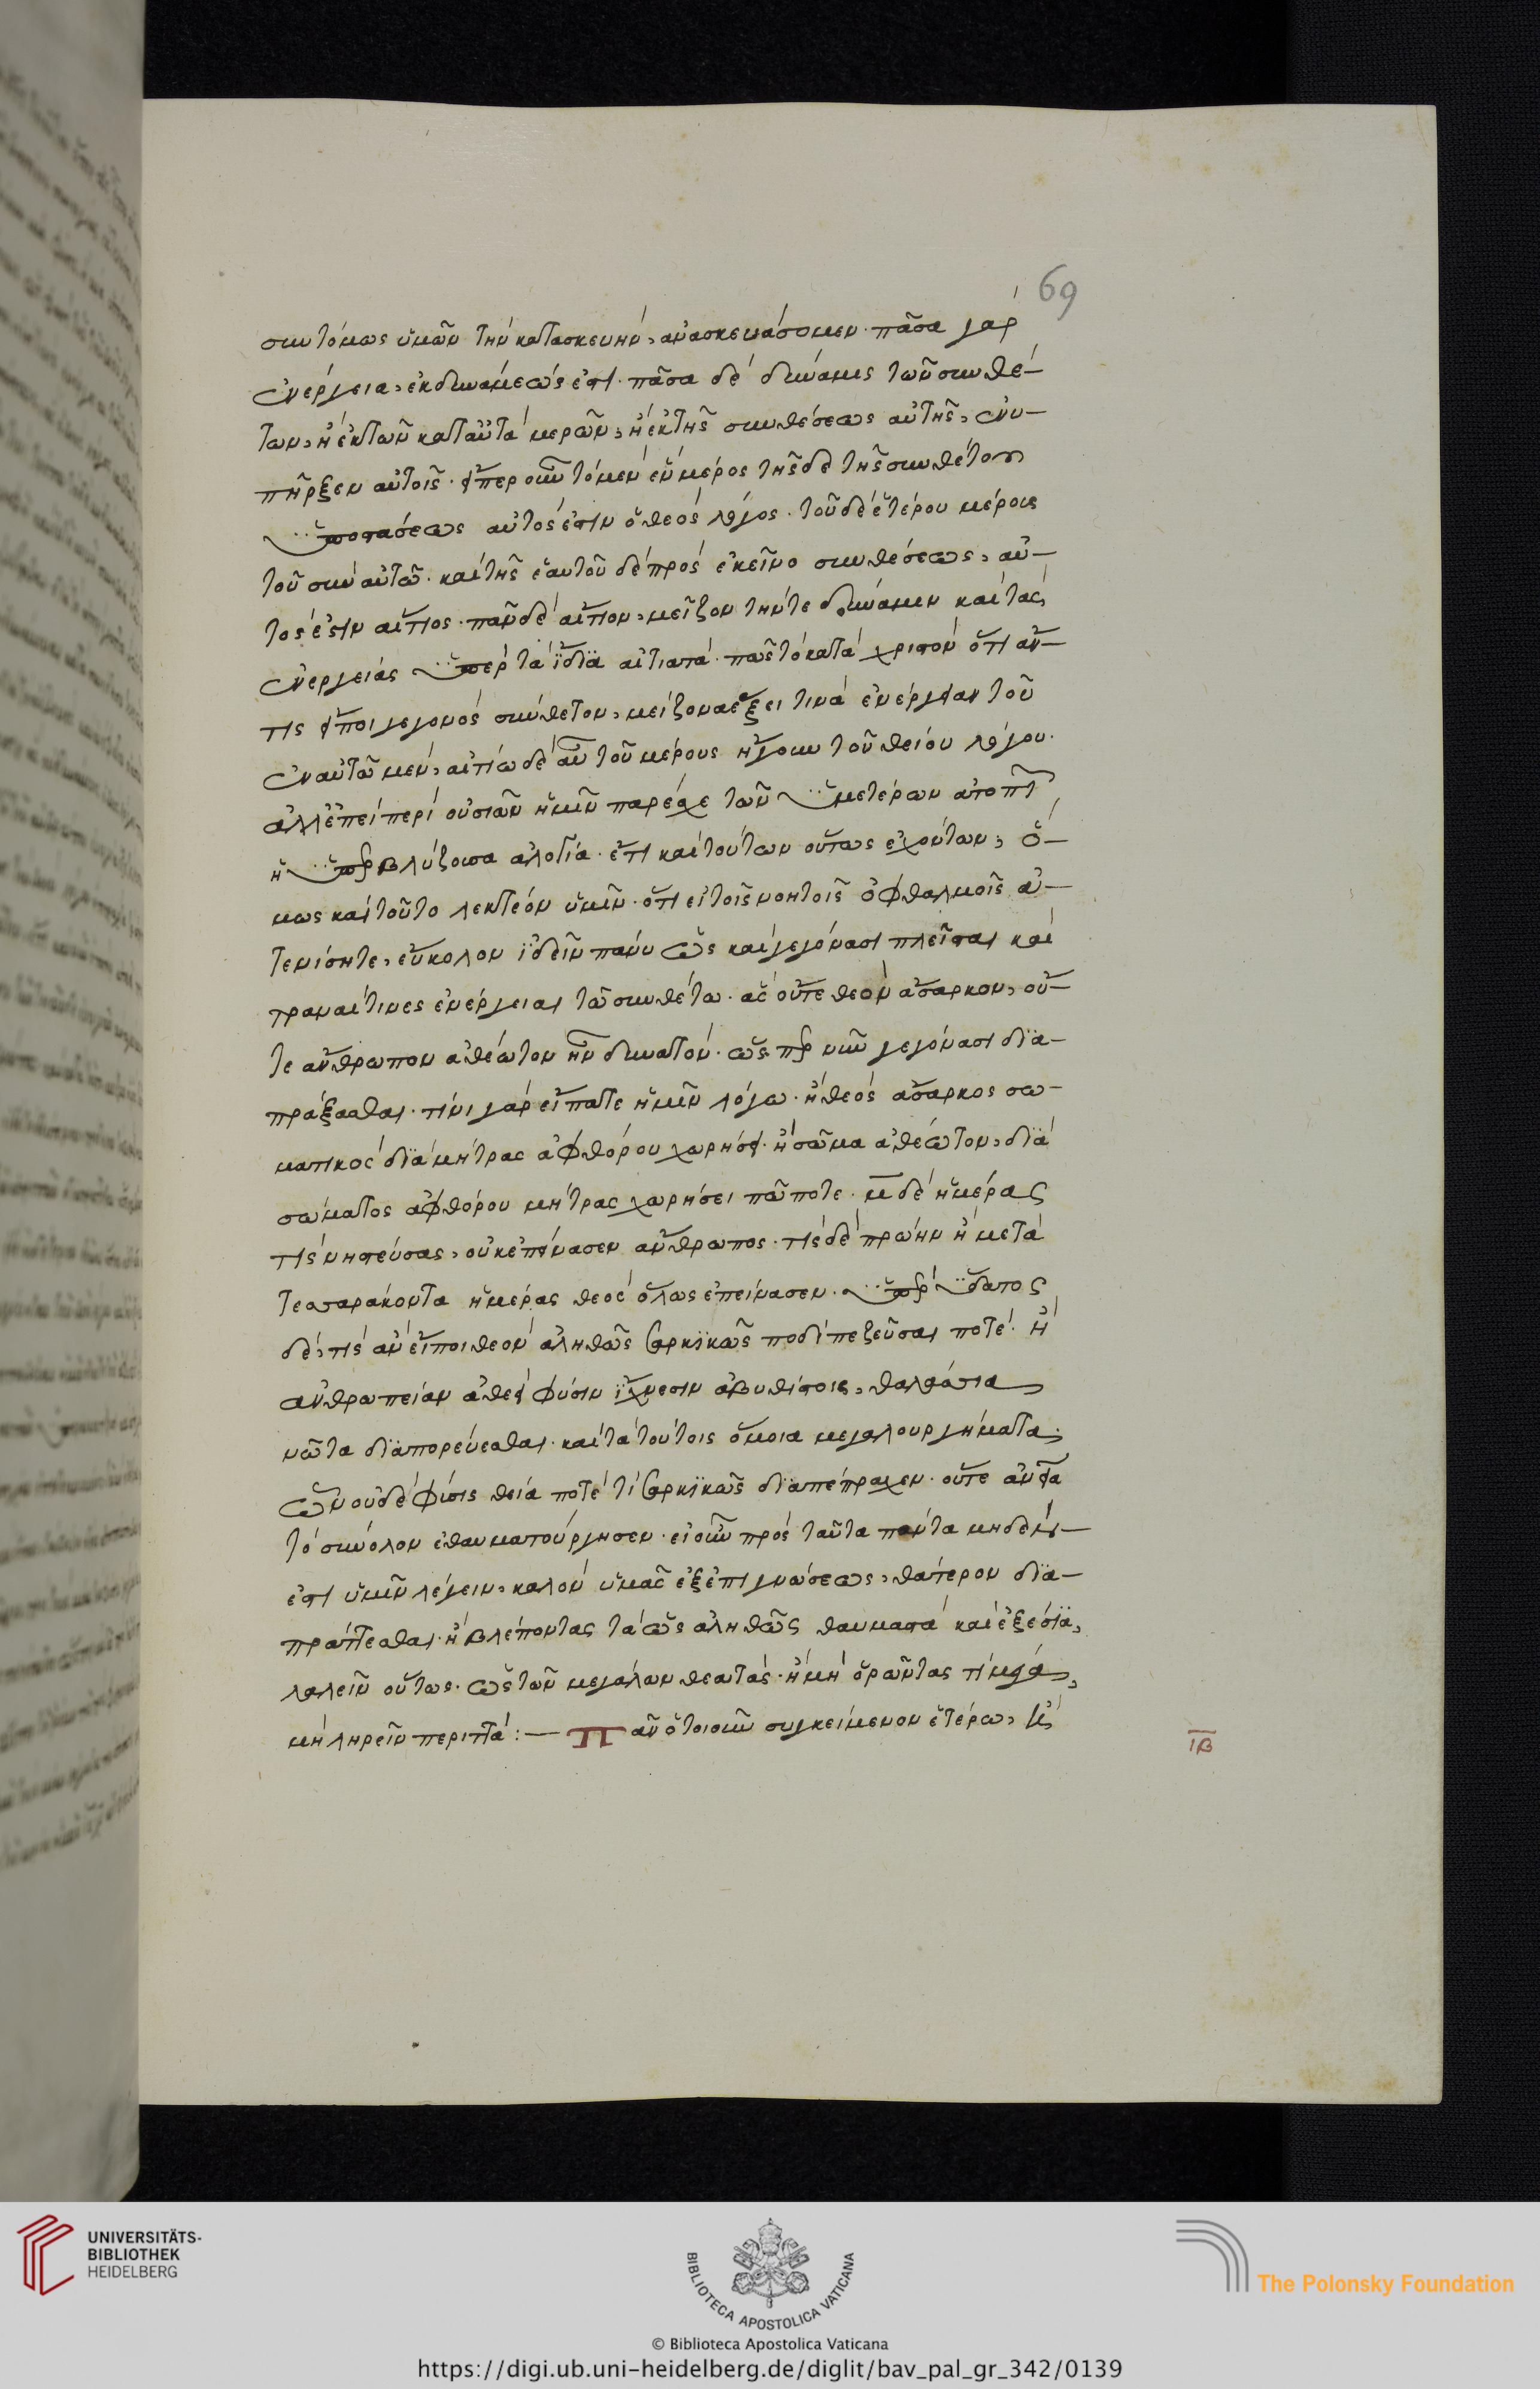 69
συντόμως ὑμῶν τὴν κατασκευὴν, ἀνασκευάσομεν. πᾶσα γὰρ
ἐνέργεια, ἐκ δυνάμεώς ἐστι. πᾶσα δὲ δύναμις τῶν συνθέ-
των, ἢ ἐκ τῶν κατ αὐτὰ μερῶν, ἢ ἐκ τῆς συνθέσεως αὐτῆς, ἐνυ-
πῆρξεν αὐτοῖς. εἴπερ οὖν τὸ μὲν ἓν μέρος τῆσδε τῆς συνθέτου
ὑποστάσεως αὐτός ἐστιν ὁ θεὸς λόγος. τοῦ δὲ ἑτέρου μέρους
τοῦ σὺν αὐτῶ. καὶ τῆς ἑαυτοῦ δὲ πρὸς ἐκεῖνο συνθέσεως, αὐ-
τός ἐστιν αἴτιος. πᾶν δὲ αἴτιον, μεῖζον τήν τε δύναμιν καὶ τὰς
ἐνεργείας ὑπὲρ τὰ ἴδια αἰτιατά. πῶς τὸ κατὰ χριστὸν ὅτι ἄν
τις εἴποι γεγονὸς σύνθετον, μείζονα ἕξει τινὰ ἐνέργειαν τοῦ
ἐν αὐτῶ μὲν, αἰτίω δὲ αὐτοῦ μέρους ἤγουν τοῦ θείου λόγου.
ἀλλ ἐπεὶ περὶ οὐσιῶν ἡμῖν παρέσχε τῶν ὑμετέρων
ἡ ὑπερβλύζουσα ἀλογία. ἔτι καὶ τούτων οὕτως ἐχόντων, ὅ-
μως καὶ τοῦτο λεκτέον ὑμῖν. ὅτι εἰ τοῖς νοητοῖς ὀφθαλμοῖς ἀ-
τενίσητε, εὔκολον ἰδεῖν πάνυ ὡς καὶ γεγόνασι πλεῖσται καὶ
τραναὶ τινες ἐνέργειαι τῶ συνθέτω. ἃς οὔτε θεὸν ἄσαρκον, οὔ-
τε ἄνθρωπον ἀθέωτον ἦν δυνατὸν. ὥσπερ νῦν γεγόνασι δια-
πράξασθαι. τίνι γὰρ εἴπατε ἡμῖν λόγω. ἢ θεὸς ἄσαρκος σω-
ματικῶς διὰ μήτρας ἀφθόρου χωρήσει. ἢ σῶμα ἀθέωτον, διὰ
σώματος ἀφθόρου μήτρας χωρήσει πώποτε. μ δὲ ἡμέρας
τίς νηστεύσας, οὐκ ἐπείνασεν ἄνθρωπος. τίς δὲ πρώην ἢ μετὰ
τεσσαράκοντα ἡμέρας θεὸς ὅλως ἐπείνασεν. ὑπὲρ ὕδατος
δὲ, τίς ἂν εἴποι θεὸν ἀληθῶς σαρκικῶς ποδὶ πεζεῦσαι ποτέ. ἢ
ἀνθρωπείαν ἀθεεὶ φύσιν ἴχνεσιν ἀβυθίστοις, θαλάσσια
νῶτα διαπορεύεσθαι. καὶ τὰ τούτοις ὅμοια μεγαλουργήματα.
ὧν οὐδὲ φύσις θεία ποτέ τι σαρκικῶς διαπέπραχεν. οὔτε
τὸ σύνολον ἐθαυματούργησεν. εἰ οὖν πρὸς ταῦτα πάντα μηδέν
ἐστι ὑμῖν λέγειν, καλὸν ὑμᾶς ἐξ ἐπιγνώσεως, θάτερον δια-
πράττεσθαι. ἢ βλέποντας τὰ ὡς ἀληθῶς θαυμαστὰ καὶ ἐξαίσια,
λαλεῖν οὕτως. ὡς τῶν μεγάλων θεατάς. ἢ μὴ ὁρῶντας τί μέγα,
μὴ ληρεῖν περιττά :— Πᾶν ὁτιοῦν συγκείμενον ἑτέρω,
ιβ
UNIVERSITÄTS-
BIBLIOTHEK
HEIDELBERG
BIBLIOTECA APOSTOLICA VATICANA
The Polonsky Foundation
© Biblioteca Apostolica Vaticana
https://digi.ub.uni-heidelberg.de/diglit/bav_pal_gr_342/0139